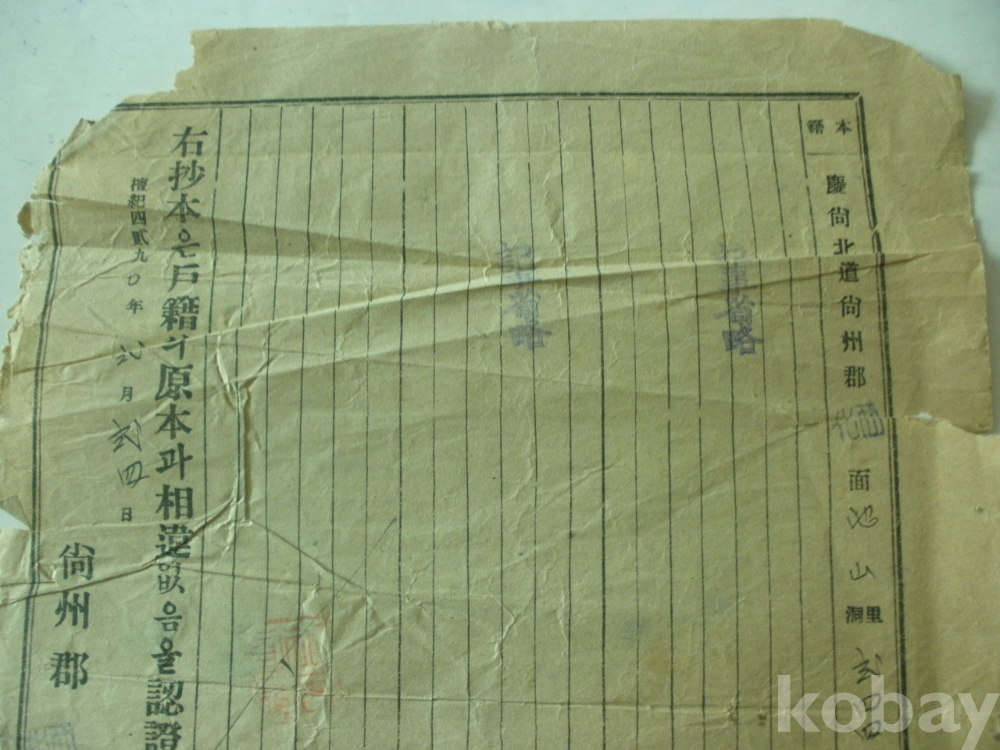 本籍
慶尙北道尙州郡化西面池山里洞
省略
省略
右抄本은戶籍의原本과相違없음을認證
檀紀四貳九〇年 月 弍四日
尙州郡
kobay